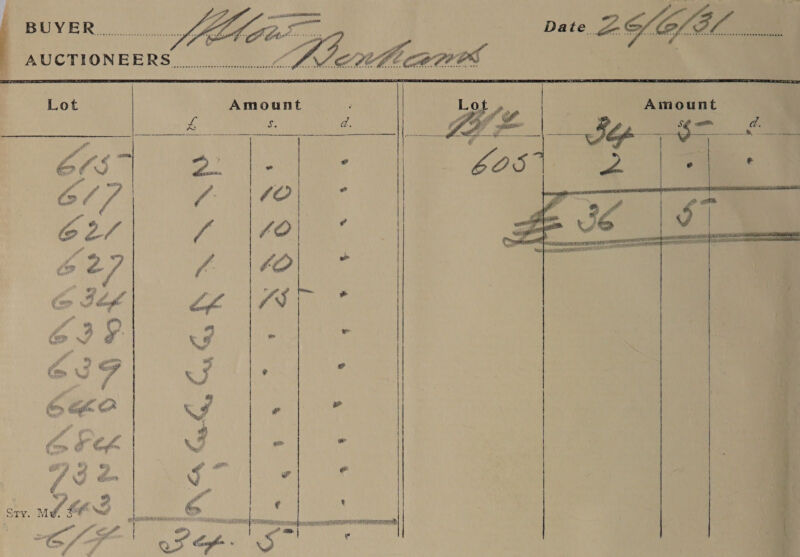 BUYER Date 26/6/31
AUCTIONEERS Bonhams
Lot Amount
£ s. d.
615 2 . .
617 1 . 10 .
621 1 10 .
627 1 . 10 .
634 4 15 .
638 3 . .
639 3 . .
640 3 . .
684 3 . .
732 5 . .
743 6 . .
C/F 34 . 5 .
Lot Amount
s. d.
B/F 34 5
605 2 . .
£ 36 5